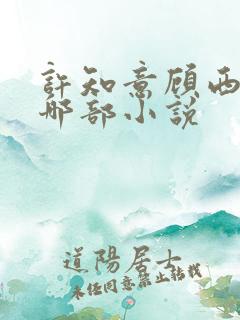 許知意顾西
那部小說
道陽居士
未经同意禁止转载